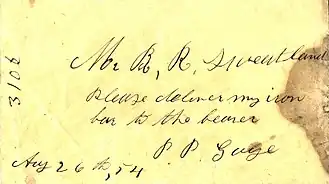 Mr B, R, Sweatland
Please deliver my iron
bar to the bearer
P. P. Gage
Aug 26th, 54
3108